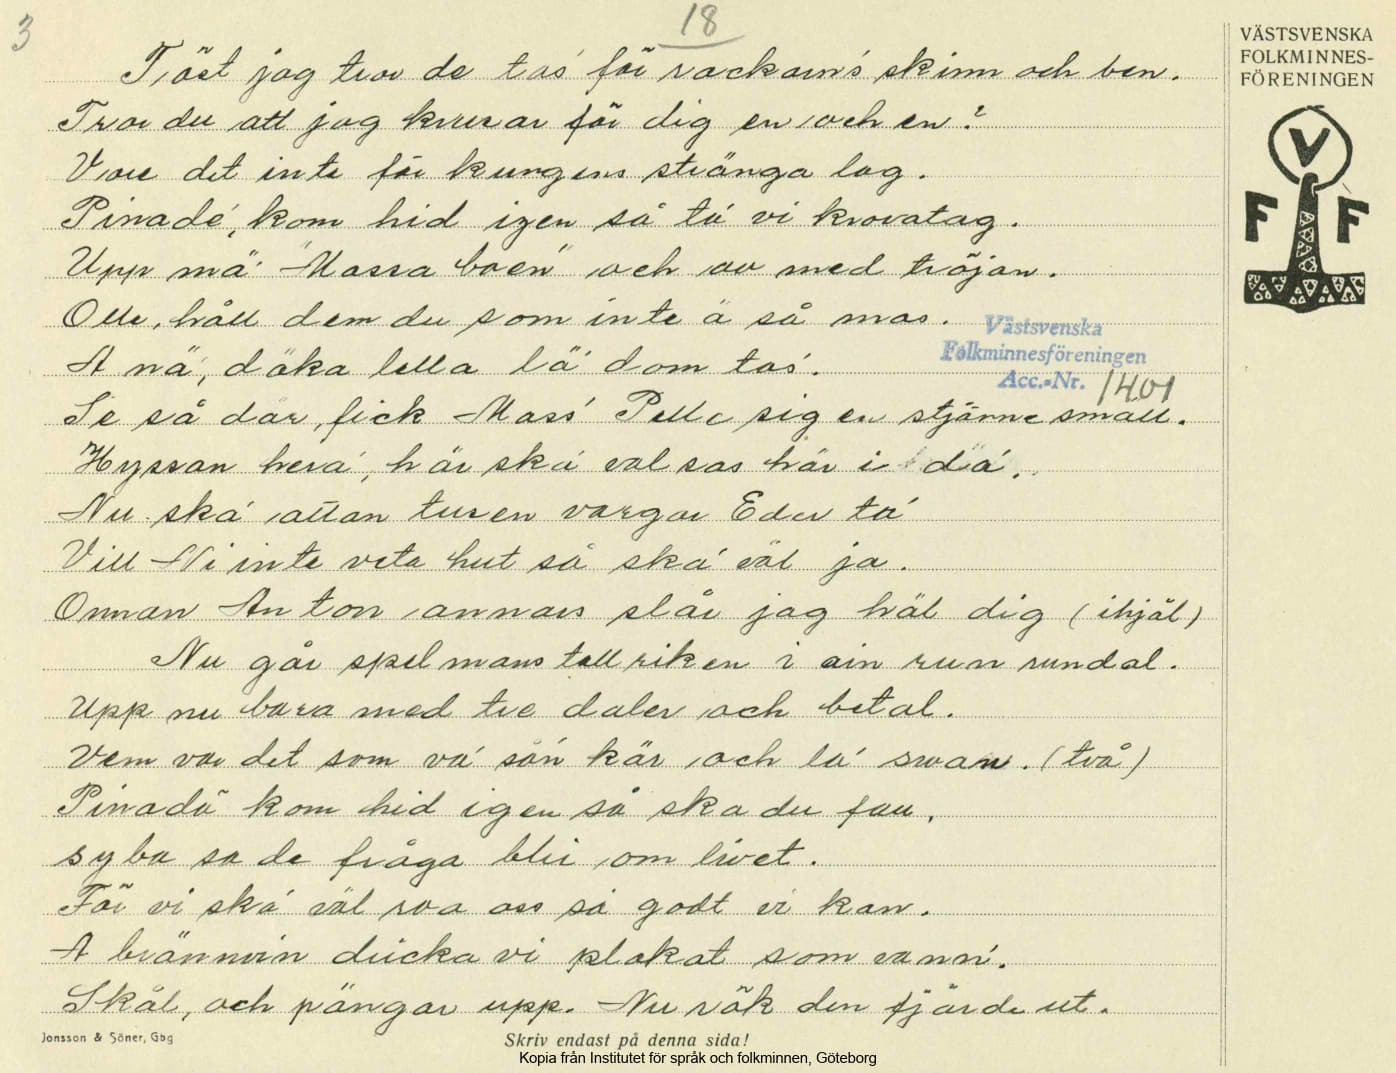 3
18
VÄSTSVENSKA
FOLKMINNES-
FÖRENINGEN
V
F F
Töst jag tror de tas för rackarn's skinn och ben.
Tror du att jag krusar för dig en och en?
Vore det inte för kungens stränga lag.
Pinadé, kom hid igen så ta' vi kravatag.
Upp mä' Massa boen och av med tröjan.
Olle, håll dem du som inte ä så mas.
A nä, däka lella lä' dom tas'.
Se så där, fick Mass' Pelle sig en stjärne small.
Hyssan hera', här ska' valsas här i da'.
Nu ska' attan tusen vargar Eder ta'
Vill Ni inte veta hut så ska' väl ja.
Onnan Anton annars slår jag häl dig (ihjäl)
Nu går spelmans tallriken i ain run rundal.
Upp nu bara med tre daler och betal.
Vem var det som va' sån kär och la' swan. (två)
Pinadö kom hid igen så ska du fau.
syba sa de fråga blir om livet.
För vi ska' väl roa oss så godt vi kan.
A brännvin dricka vi plakat som vann'.
Skål, och pängar upp. Nu rök den fjärde ut.
Västsvenska
Folkminnesföreningen
Acc.-Nr. 1401
Jonsson & Söner, Gbg
Skriv endast på denna sida!
Kopia från Institutet för språk och folkminnen, Göteborg